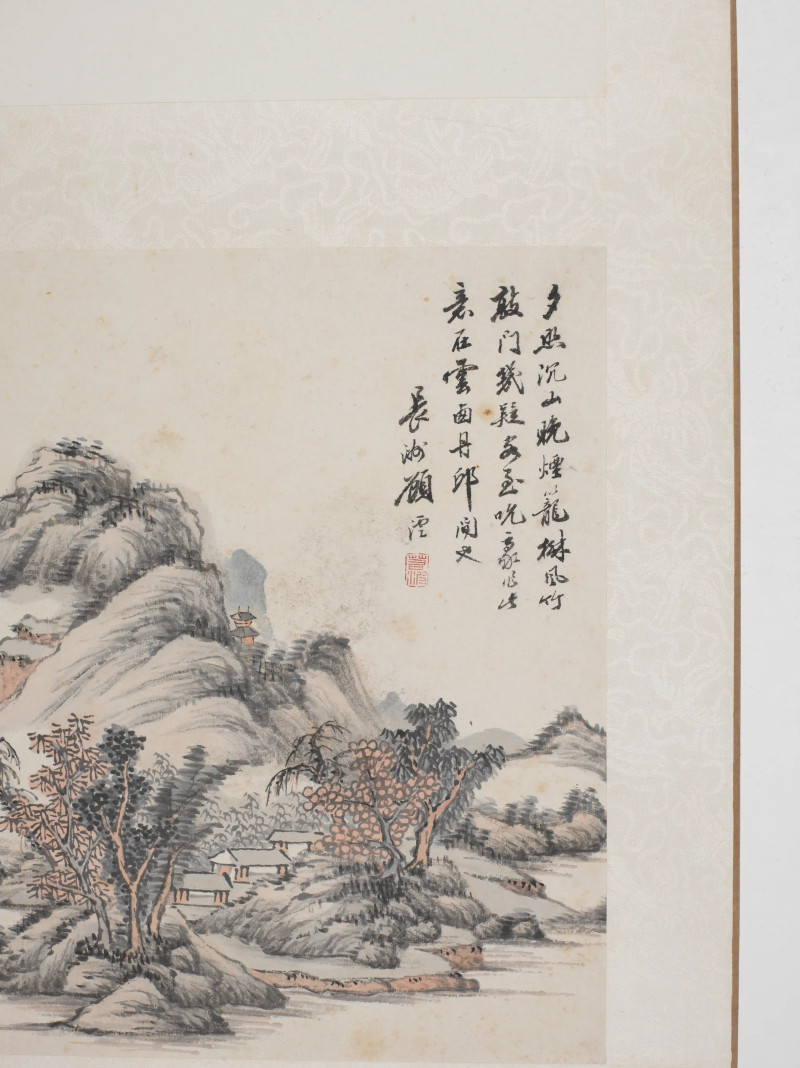 夕照沉山晚煙籠樹風竹
敲門幾疑客至吮豪作此
意在雲西丹邱間也
長洲顧澐